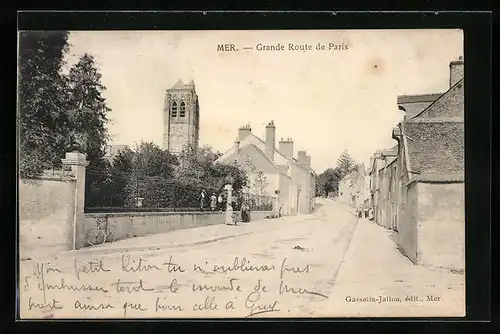 MER. — Grande Route de Paris
Mon petit Liton tu n'oublieras pas
d'embrasser tout le monde de Mer
pour ainsi que pour celle à Guy
Gasselin-Jallon, édit., Mer